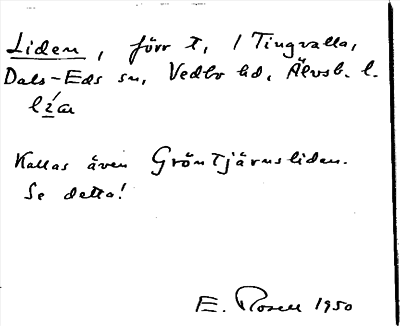 Liden, förr t. / Tingvalla,
Dals-Eds sn, Vedbo hd, Älvsb. l.
Kallas även Gröntjärnsliden.
Se detta!
E. Rosell 1950